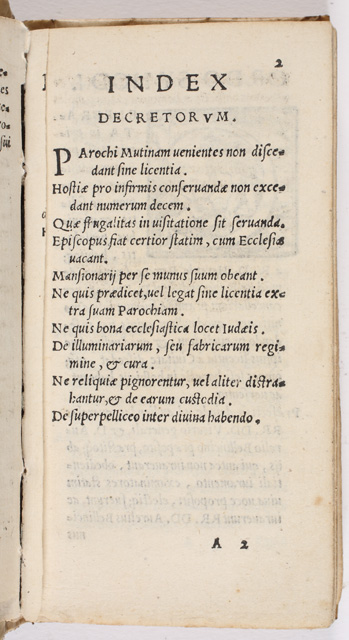 2
INDEX
DECRETORVM.
PArochi Mutinam uenientes non disce-
dant sine licentia.
Hostiæ pro infirmis conseruandæ non exce-
dant numerum decem.
Quæ frugalitas in uisitatione sit seruanda.
Episcopus fiat certior statim, cum Ecclesia
uacant.
Mansionarij per se munus suum obeant.
Ne quis prædicet, uel legat sine licentia ex-
tra suam Parochiam.
Ne quis bona ecclesiastica locet Iudæis.
De illuminariarum, seu fabricarum regi-
mine, & cura.
Ne reliquiæ pignorentur, uel aliter distra-
hantur, & de earum custodia.
De superpelliceo inter diuina habendo.
A 2